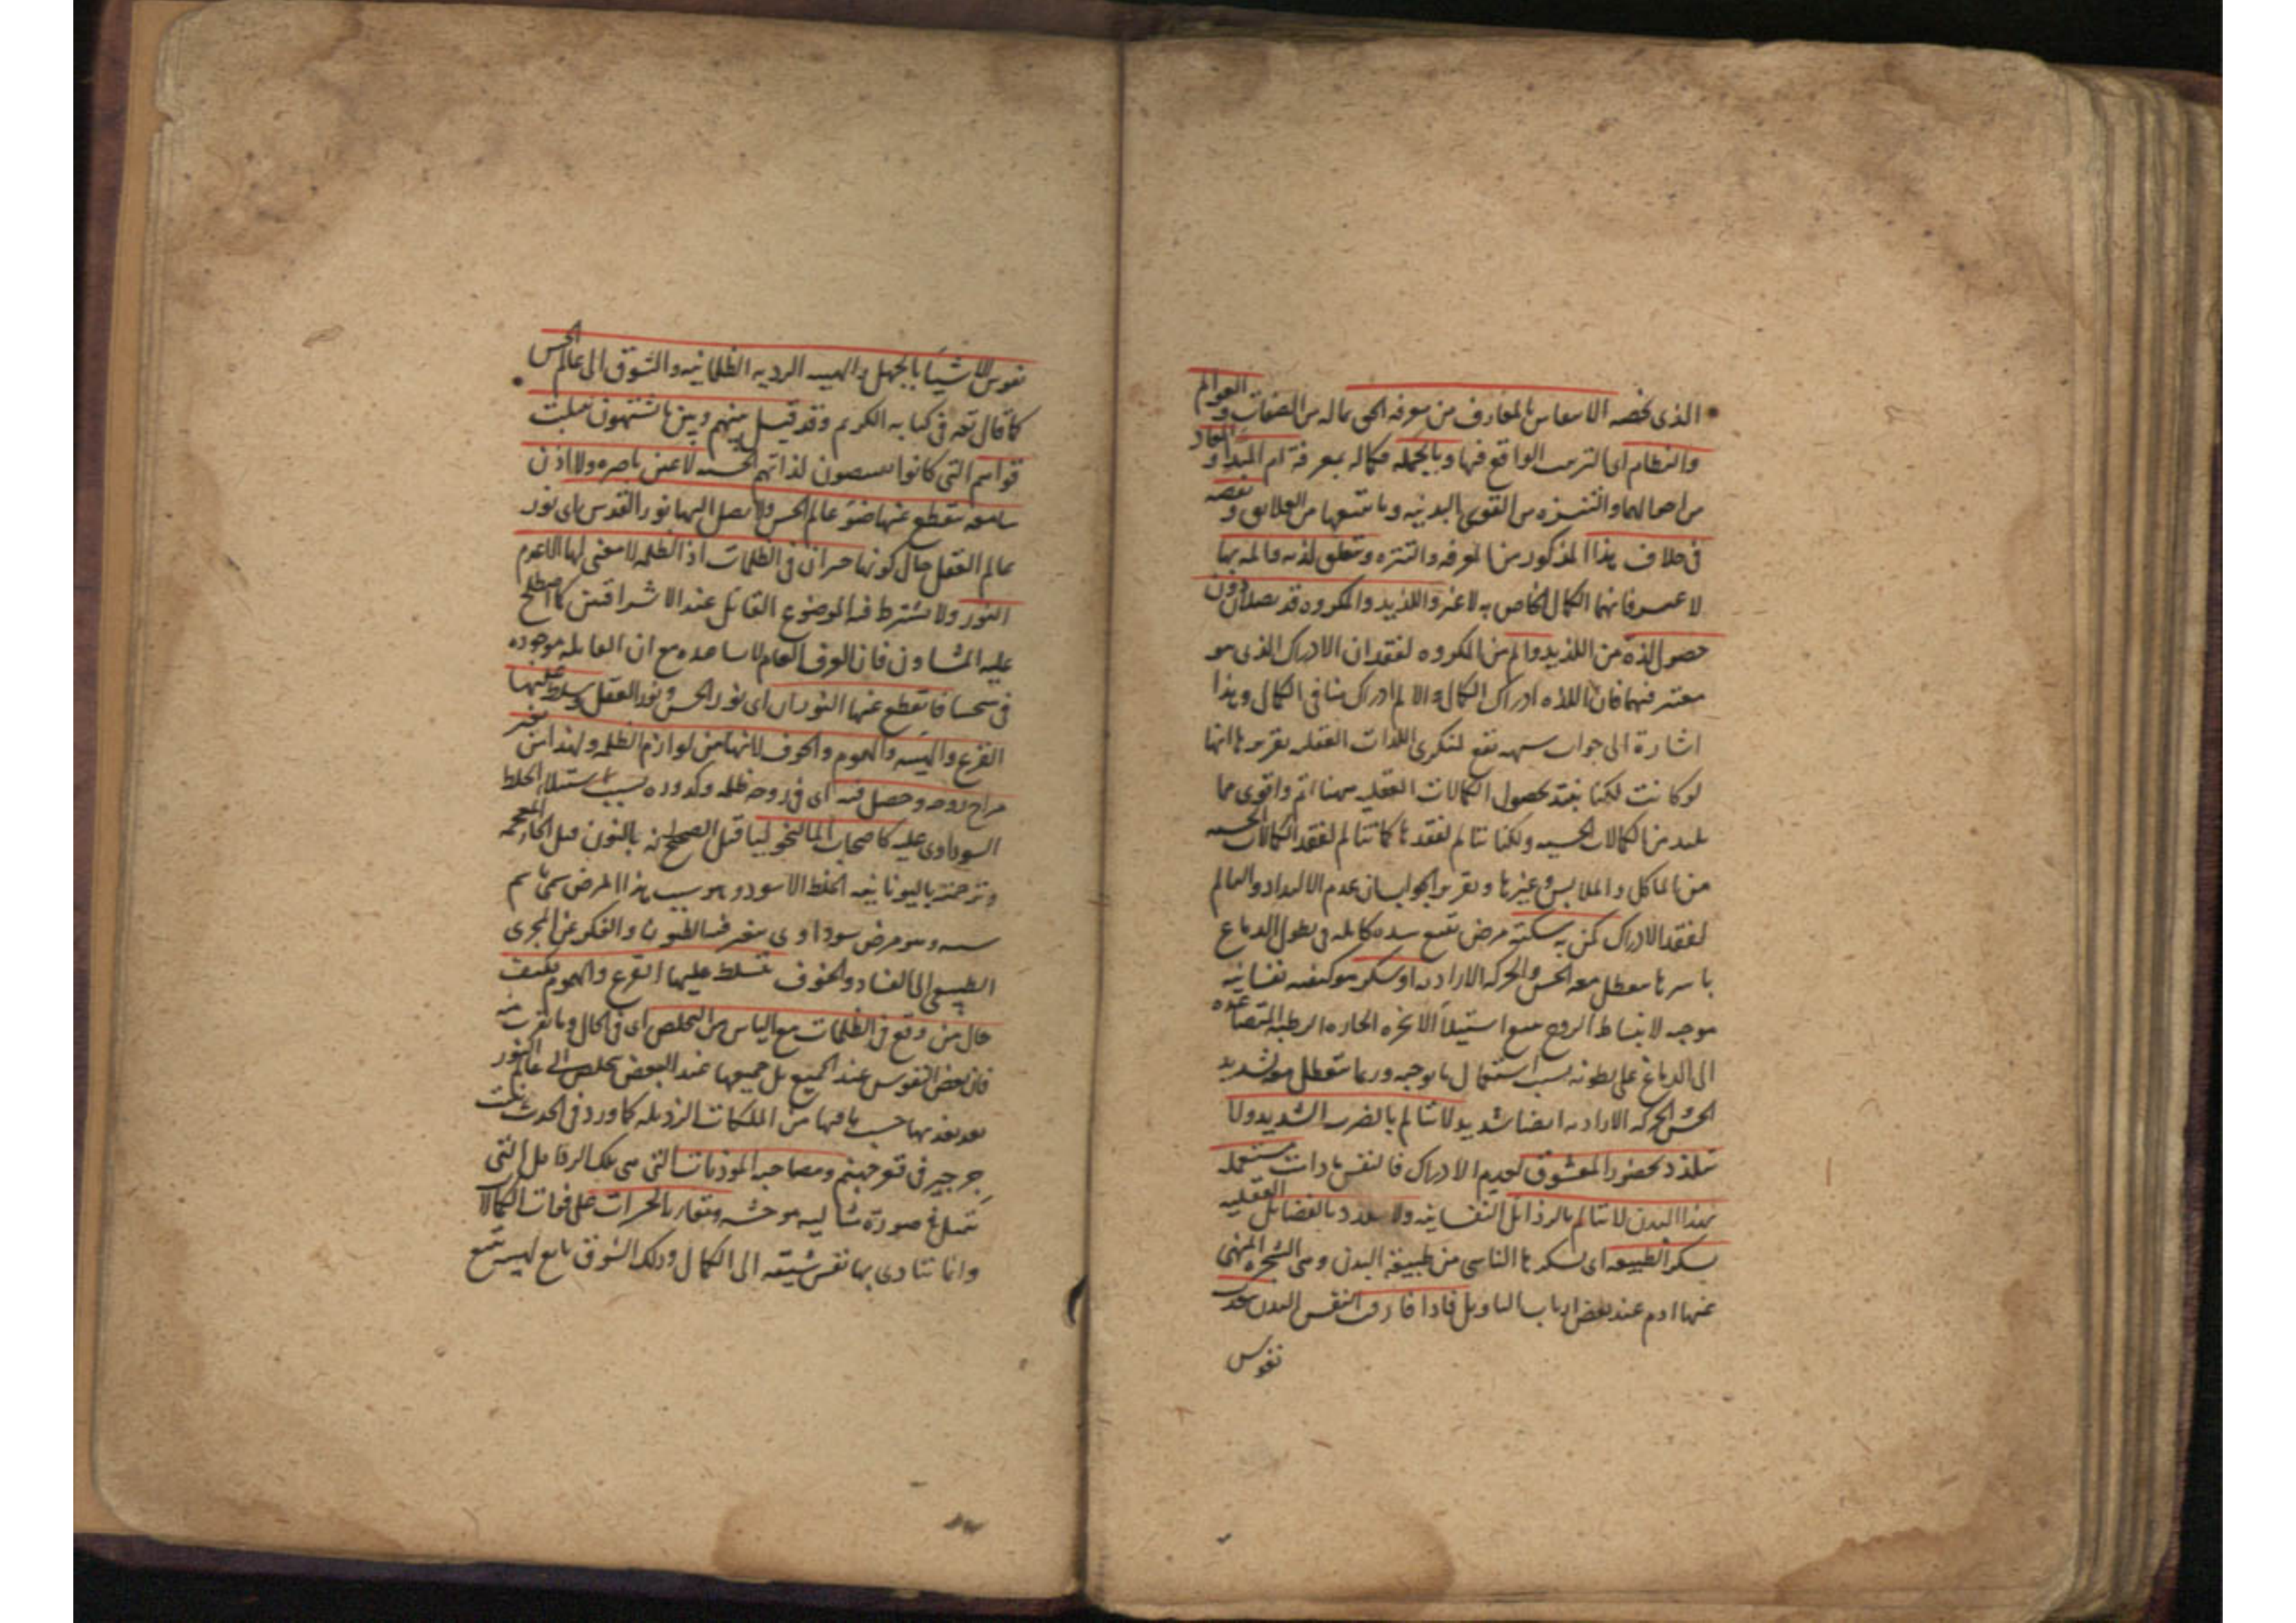 الذى يخصه الانتقاش بالمعارف من معرفة الحق بما له من الصفات و العوالم
والنظام اى الترتيب الواقع فيها وبالجملة فكماله بمعرفة امر المبدء و المعاد
من احوالهما والتنزه من القوى البدنيه وما يتبعها من العلايق و نقصه
فى خلاف هذا المذكور من المعرفه والتنزه وتتعلق لذته والمه بهما
لا غير فانهما الكمال الخاص به لا غير واللذيذ والمكروه قد يصلان دون
حصول لذة من اللذيذ والم من المكروه لفقدان الادراك الذى هو
معتبر فيهما فان اللذه ادراك الكمال والالم ادراك منافى الكمال وهذا
اشارة الى جواب شبهه تقع لمنكرى اللذات العقليه تقريرها انها
لو كانت لكنا نلتذ بحصول الكمالات العقليه مهنا اتم واقوى مما
نلتذ من الكمالات الحسيه ولكنا نتالم لفقدها كما نتالم لفقد الكمالات الحسيه
من الماكل والملابس وغيرها وتقرير الجواب ان عدم الالتذاذ والتالم
لفقد الادراك كمن به سكته مرض تتبع سده كامله فى بطون الدماغ
باسرها معطل معه الحس والحركه الاراديه او سكر هو كيفيه نفسانيه
موجبه لانبساط الروح تتبع استيلاء الابخره الحاره الرطبه المتصاعده
الى الدماغ على بطونه بسبب استعمال ما يوجبه وربما يتعطل معه لشديد
الحس والحركه الاراديه ايضا شديد لا يتالم بالضرب الشديد ولا
يتلذذ بحضور المعشوق لعدم الادراك فالنفس ما دامت مشتغله
بهذا البدن لا تتالم بالرذايل النفسانيه ولا تتلذذ بالفضائل العقليه
لسكر الطبيعه اى لسكرها الناشى من طبيعة البدن وهى الشجره المنهى
عنها ادم عند بعض ارباب التاويل فاذا فارقت النفس البدن تتعذب
نفوس
نفوس الاشقياء بالجهل والهيئه الرديه الظلمانيه والشوق الى عالم الحس
كما قال تعه فى كتابه الكريم وقد قيل حيل بينهم وبين ما يشتهون سلبت
قواهم التى كانوا يقتنصون لذاتهم الحسيه لا عين باصره ولا اذن
سامعه ينقطع عنها ضوء عالم الحس ولا يصل اليها نور القدس اى نور
عالم العقل حال كونها حيران فى الظلمات اذ الظلمه لا معنى لها الا عدم
النور ولا يشترط فيه الموضوع القابل عند الاشراقيين كما اصطلح
عليه المشاون فان العرف العام لا يساعده مع ان القابليه موجوده
فى فانقطع عنها النوران اى نور الحس ونور العقل وتسلط عليها
الفزع والهيبه والهموم والخوف لانها من لوازم الظلمه ولهذا من تغير
مزاج روحه وحصل فيه اى فى روحه ظلمه وكدوره بسبب استيلاء الخلط
السوداوى عليه كاصحاب الماليخوليا قيل الصحيح انه بالنون قبل الخاء المعجمه
وترجمته باليونانيه الخلط الاسود وهو سبب هذا المرض سمى باسم
سببه وهو مرض سوداوى يتغير فيه الظنون والفكر عن المجرى
الطبيعى الى الفساد والخوف تتسلط عليها الفزع والهموم فكيف
حال من وقع فى الظلمات مع الياس من التخلص اى فى الحال وما يقرب منه
فان بعض النفوس عند الجميع بل جميعها عند البعض يخلص الى عالم النور
بعد تعذيبها حسب ما فيها من الملكات الرذيله كما ورد فى الحديث ينبت
جرجير فى قعر جهنم ومصاحبه الموذيات التى هى تلك الرذايل التى
تتمثل فى صورة مثاليه موحشه وتقارنها الحسرات على فوات الكمالات
وانما تتاذى بها نفس شيقه الى الكمال وذلك الشوق تابع لهيئه تتبع